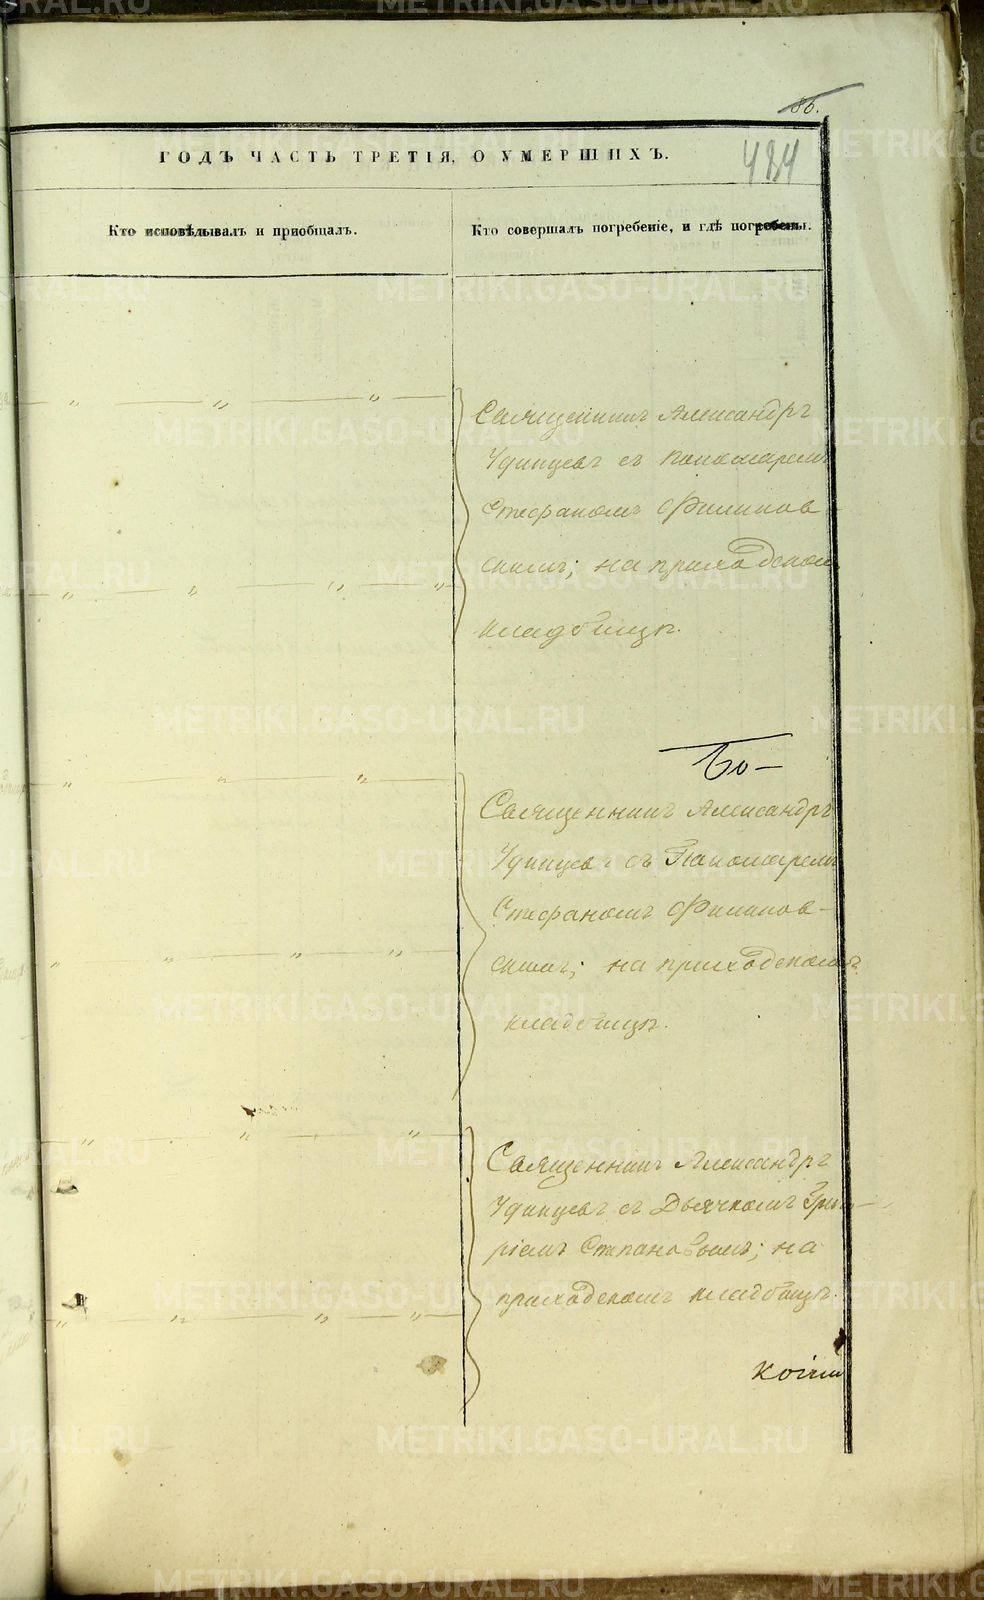 86.
484
ГОДЪ ЧАСТЬ ТРЕТІЯ, О УМЕРШИХЪ.
Кто исповѣдывалъ и пріобщалъ.
Кто совершалъ погребеніе, и гдѣ погребены.
Священникъ Александръ
Удинцевъ съ пономаремъ
Стефаномъ Филипов-
скимъ; на приходскомъ
кладбищѣ.
Во-
Священникъ Александръ
Удинцевъ съ Пономаремъ
Стефаномъ Филипов-
скимъ; на приходскомъ
кладбищѣ.
Священникъ Александръ
Удинцевъ съ Дьячкомъ Григо-
ріемъ Степановымъ; на
приходскомъ кладбищѣ.
METRIKI.GASO-URAL.RU